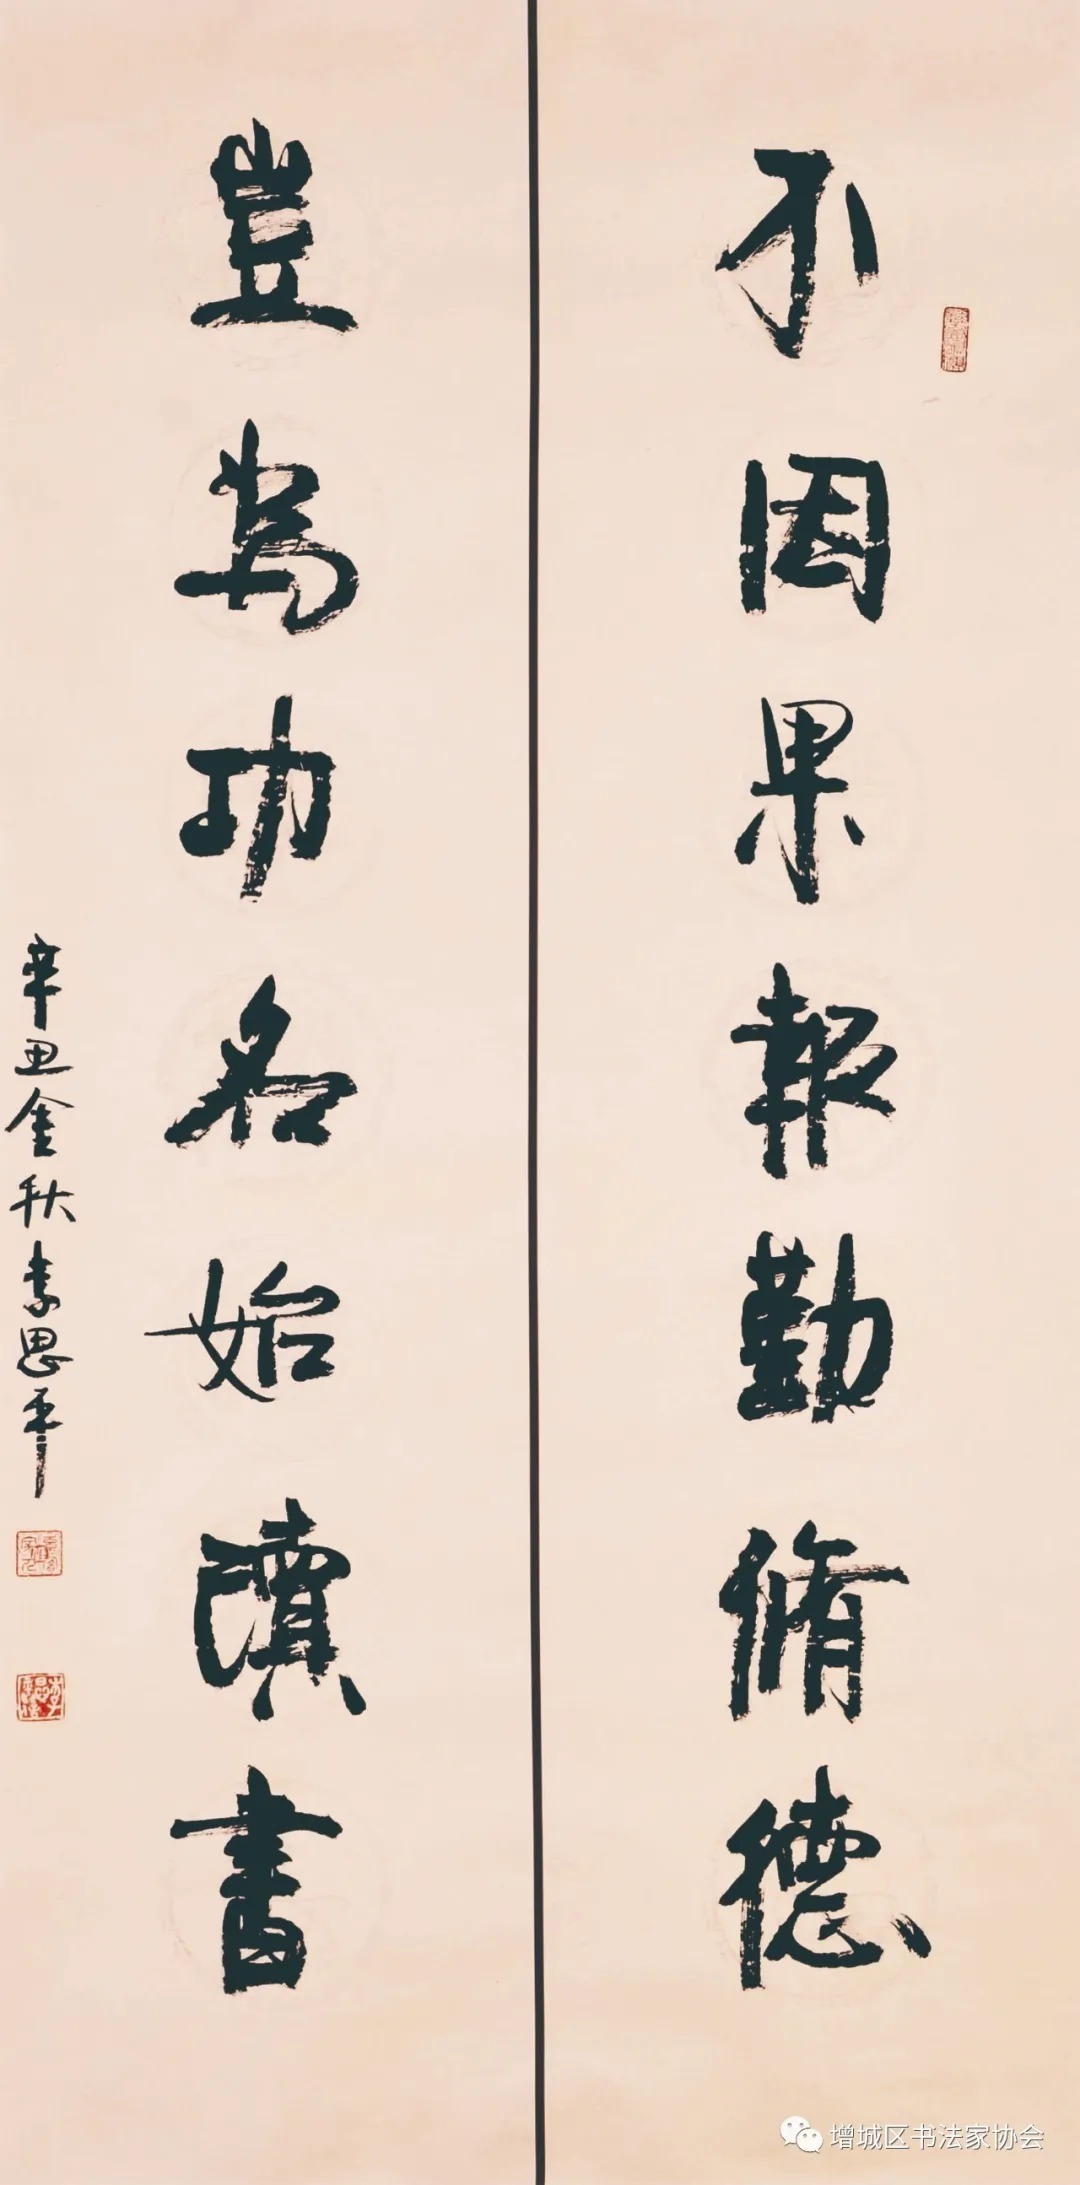 不因果報勤修德
豈為功名始讀書
辛丑金秋李思平
增城区书法家协会